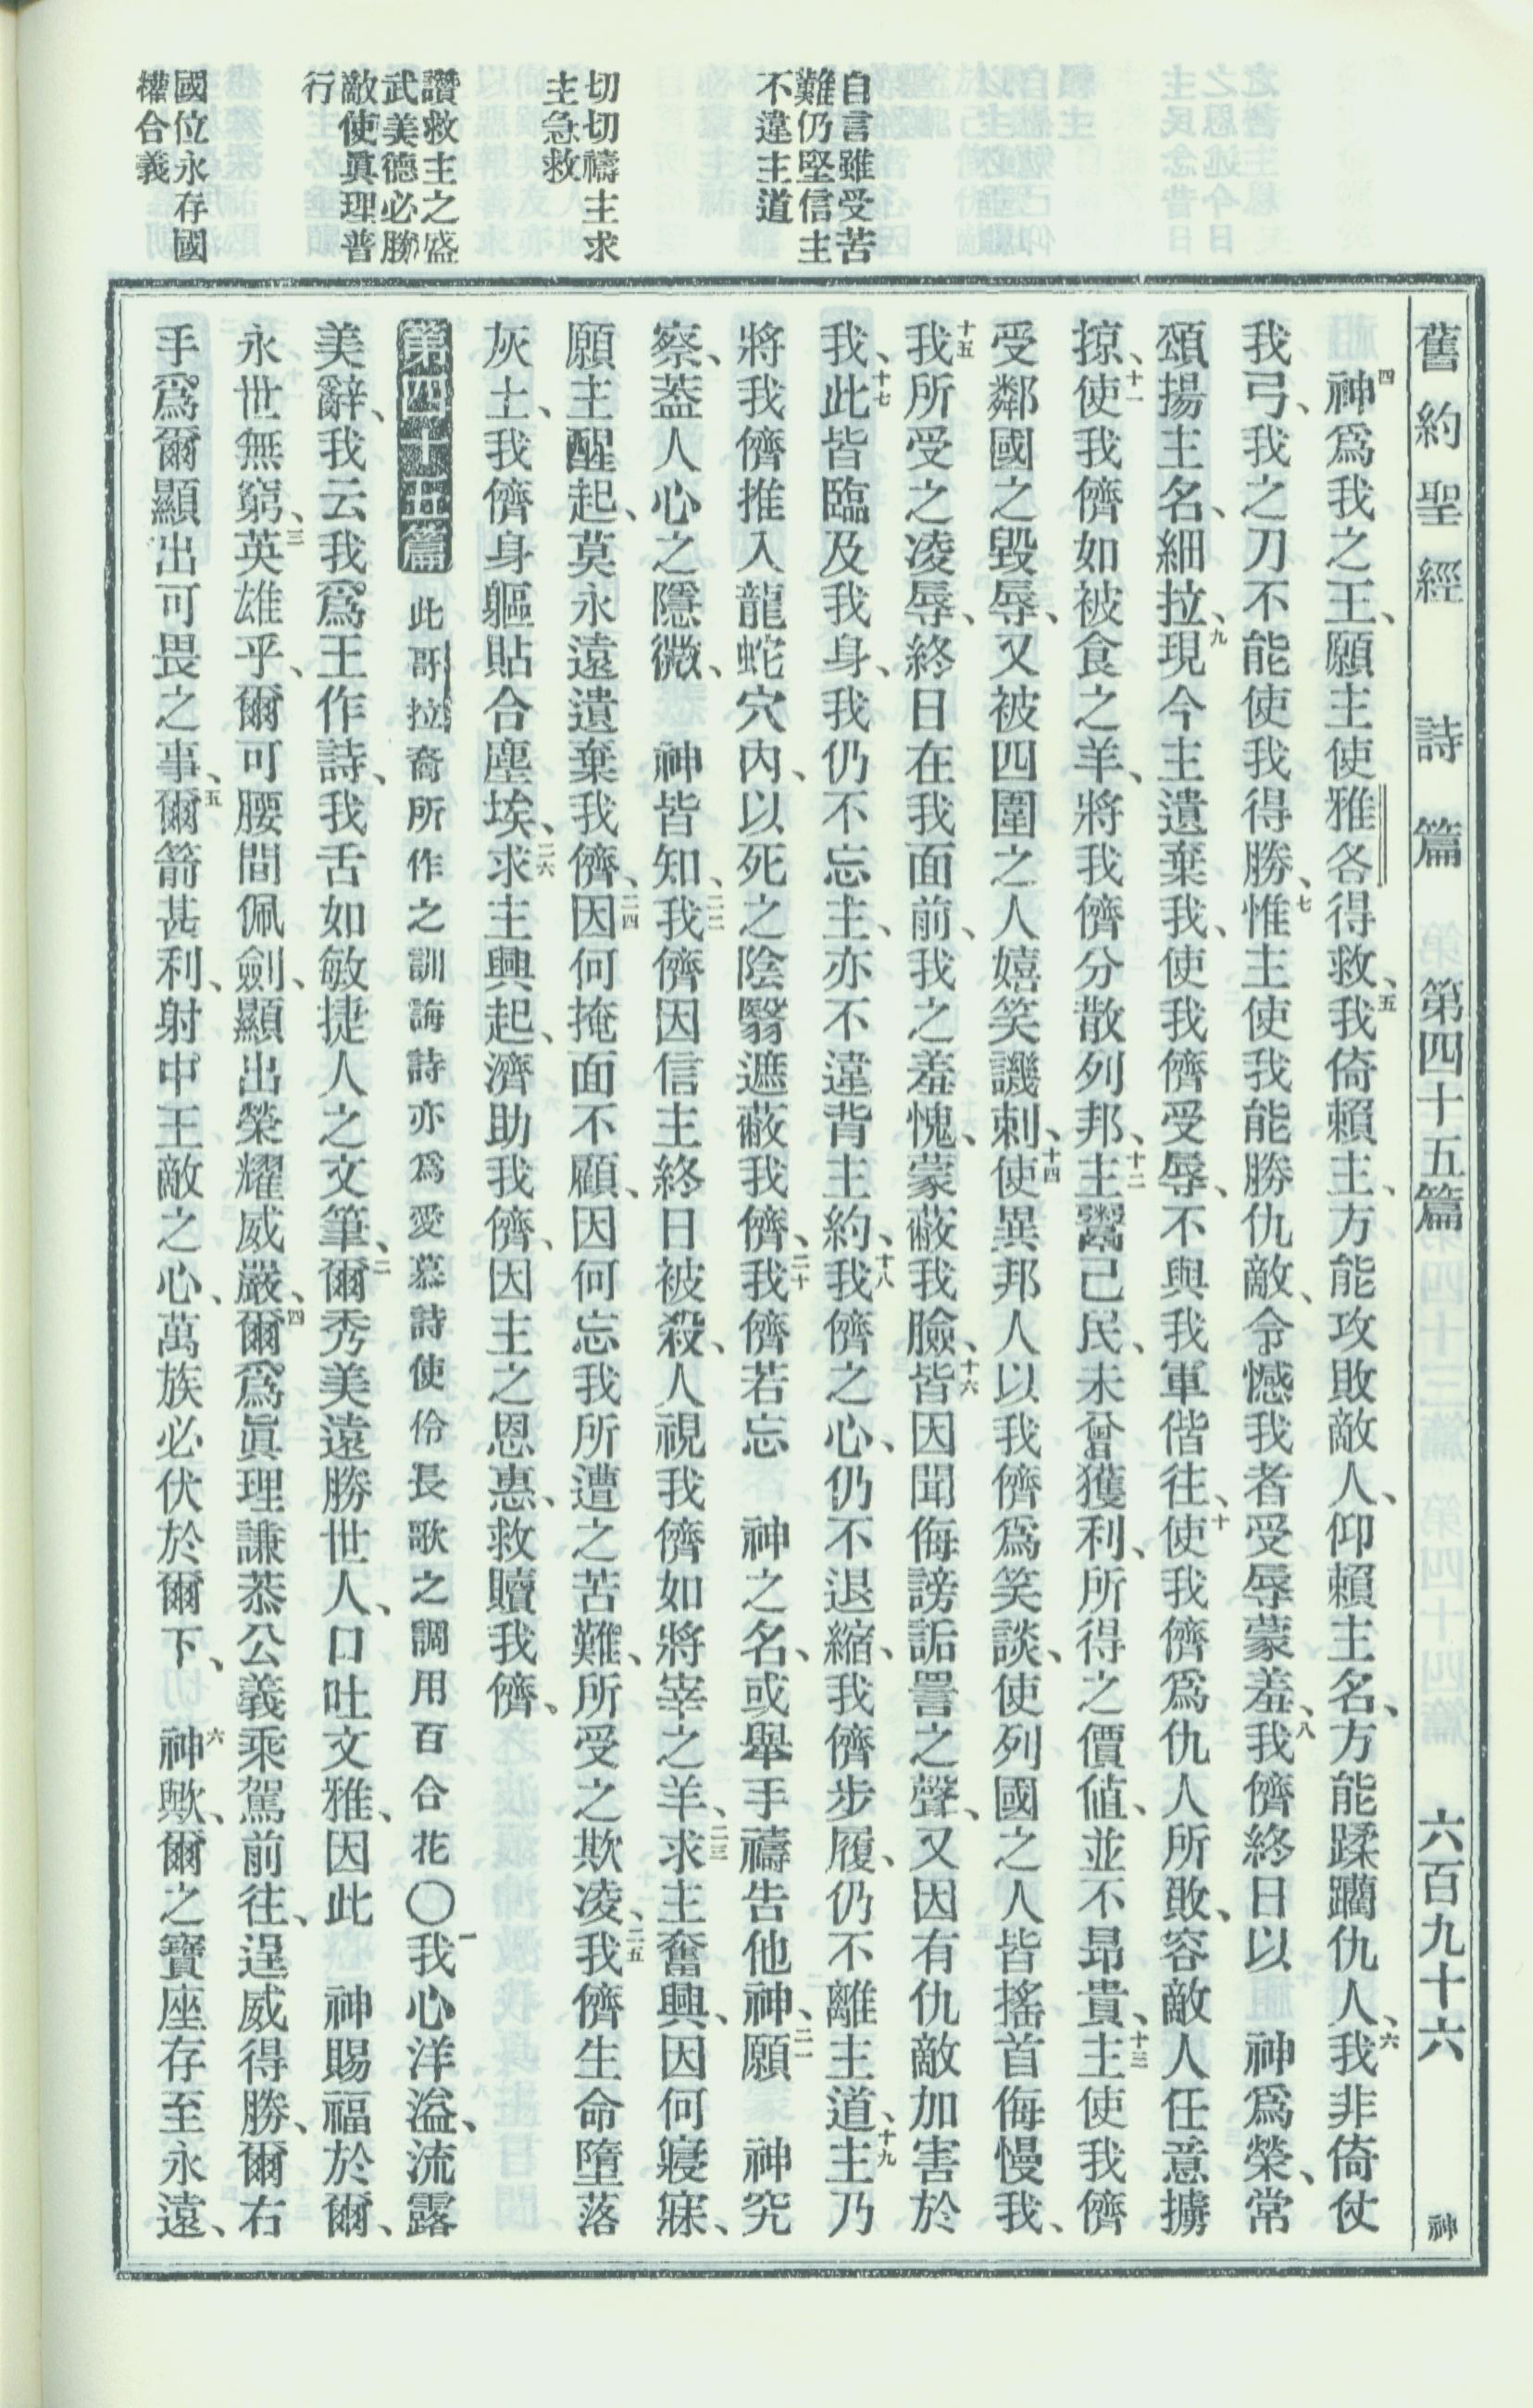 舊約聖經 詩篇 第四十五篇 六百九十六 神
自言雖受苦
難仍堅信主
不違主道
切切禱主求
主急救
讚救主之盛
武美德必勝
敵使眞理普
行
國位永存國
權合義
四神爲我之王、願主使雅各得救、五我倚賴主、方能攻敗敵人、仰賴主名、方能蹂躪仇人、六我非倚仗
我弓、我之刀不能使我得勝、七惟主使我能勝仇敵、令憾我者受辱蒙羞、八我儕終日以 神爲榮、常
頌揚主名、細拉、九現今主遺棄我、使我儕受辱、不與我軍偕往、十使我儕爲仇人所敗、容敵人任意擄
掠、十一使我儕如被食之羊、將我儕分散列邦、十二主鬻己民、未曾獲利、所得之價値、並不昻貴、十三主使我儕
受鄰國之毀辱、又被四圍之人嬉笑譏刺、十四使異邦人以我儕爲笑談、使列國之人皆搖首侮慢我、
十五我所受之凌辱、終日在我面前、我之羞愧、蒙蔽我臉、十六皆因聞侮謗詬詈之聲、又因有仇敵加害於
我、十七此皆臨及我身、我仍不忘主、亦不違背主約、十八我儕之心、仍不退縮、我儕步履、仍不離主道、十九主乃
將我儕推入龍蛇穴內、以死之陰翳遮蔽我儕、二十我儕若忘 神之名、或舉手禱告他神、二一願 神究
察、蓋人心之隱微、 神皆知、二二我儕因信主終日被殺、人視我儕如將宰之羊、二三求主奮興、因何寢寐、
願主醒起、莫永遠遺棄我儕、二四因何掩面不顧、因何忘我所遭之苦難、所受之欺凌、二五我儕生命墮落
灰土、我儕身軀貼合塵埃、二六求主興起、濟助我儕、因主之恩惠、救贖我儕、
第四十五篇 此哥拉裔所作之訓誨詩亦爲愛慕詩使伶長歌之調用百合花〇一我心洋溢、流露
美辭、我云我爲王作詩、我舌如敏捷人之文筆、二爾秀美遠勝世人、口吐文雅、因此 神賜福於爾、
永世無窮、三英雄乎、爾可腰間佩劍、顯出榮耀威嚴、四爾爲眞理謙恭公義乘駕前往、逞威得勝、爾右
手爲爾顯出可畏之事、五爾箭甚利、射中王敵之心、萬族必伏於爾下、六神歟、爾之寶座存至永遠、